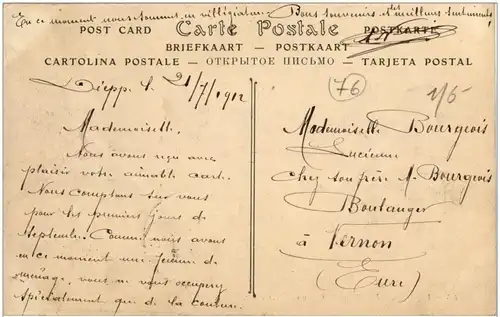 En ce moment nous sommes en villégiature. Bons souvenirs et meilleurs sentiments
POST CARD Carte Postale POSTKARTE
BRIEFKAART — POSTKAART
CARTOLINA POSTALE — ОТКРЫТОЕ ПИСЬМО — TARJETA POSTAL
Diepp. l. 21/7/1912
76
1/5
Mademoiselle,
Nous avons reçu avec
plaisir votre aimable cart.
Nous comptons sur vous
pour les premiers jours de
Septembr. Comme nous avons
en ce moment une
ménage, vous occuperez
spécialement que de la couture.
Mademoiselle Bourgeois
Lucienne
Chez son père M. Bourgeois
Boulanger
à Vernon
(Eure)